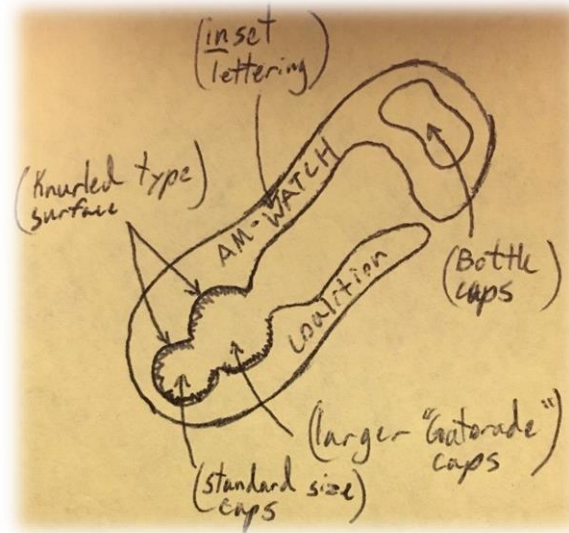 (inset
lettering)
(Knurled type)
surface
AM-WATCH
(Bottle
caps)
Coalition
(larger "Gatorade")
caps
(standard size)
caps